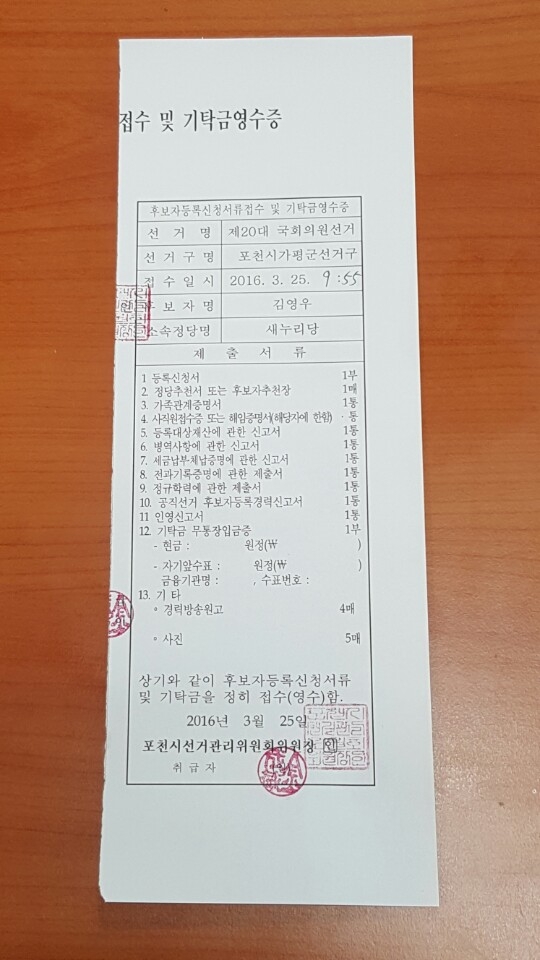 접수 및 기탁금영수증
후보자등록신청서류접수 및 기탁금영수증
선 거 명 제20대 국회의원선거
선 거 구 명 포천시가평군선거구
접 수 일 시 2016. 3. 25. 9:55
후 보 자 명 김영우
소속정당명 새누리당
제 출 서 류
1 등록신청서 1부
2. 정당추천서 또는 후보자추천장 1매
3. 가족관계증명서 1통
4. 사직원접수증 또는 해임증명서(해당자에 한함) · 통
5. 등록대상재산에 관한 신고서 1통
6. 병역사항에 관한 신고서 1통
7. 세금납부·체납증명에 관한 신고서 1통
8. 전과기록증명에 관한 제출서 1통
9. 정규학력에 관한 제출서 1통
10. 공직선거 후보자등록경력신고서 1통
11 인영신고서 1통
12. 기탁금 무통장입금증 1부
- 현금 : 원정(₩ )
- 자기앞수표 : 원정(₩ )
금융기관명 : , 수표번호 :
13. 기 타
◦ 경력방송원고 4매
◦ 사진 5매
상기와 같이 후보자등록신청서류
및 기탁금을 정히 접수(영수)함.
2016년 3월 25일
포천시선거관리위원회위원장 인
취 급 자